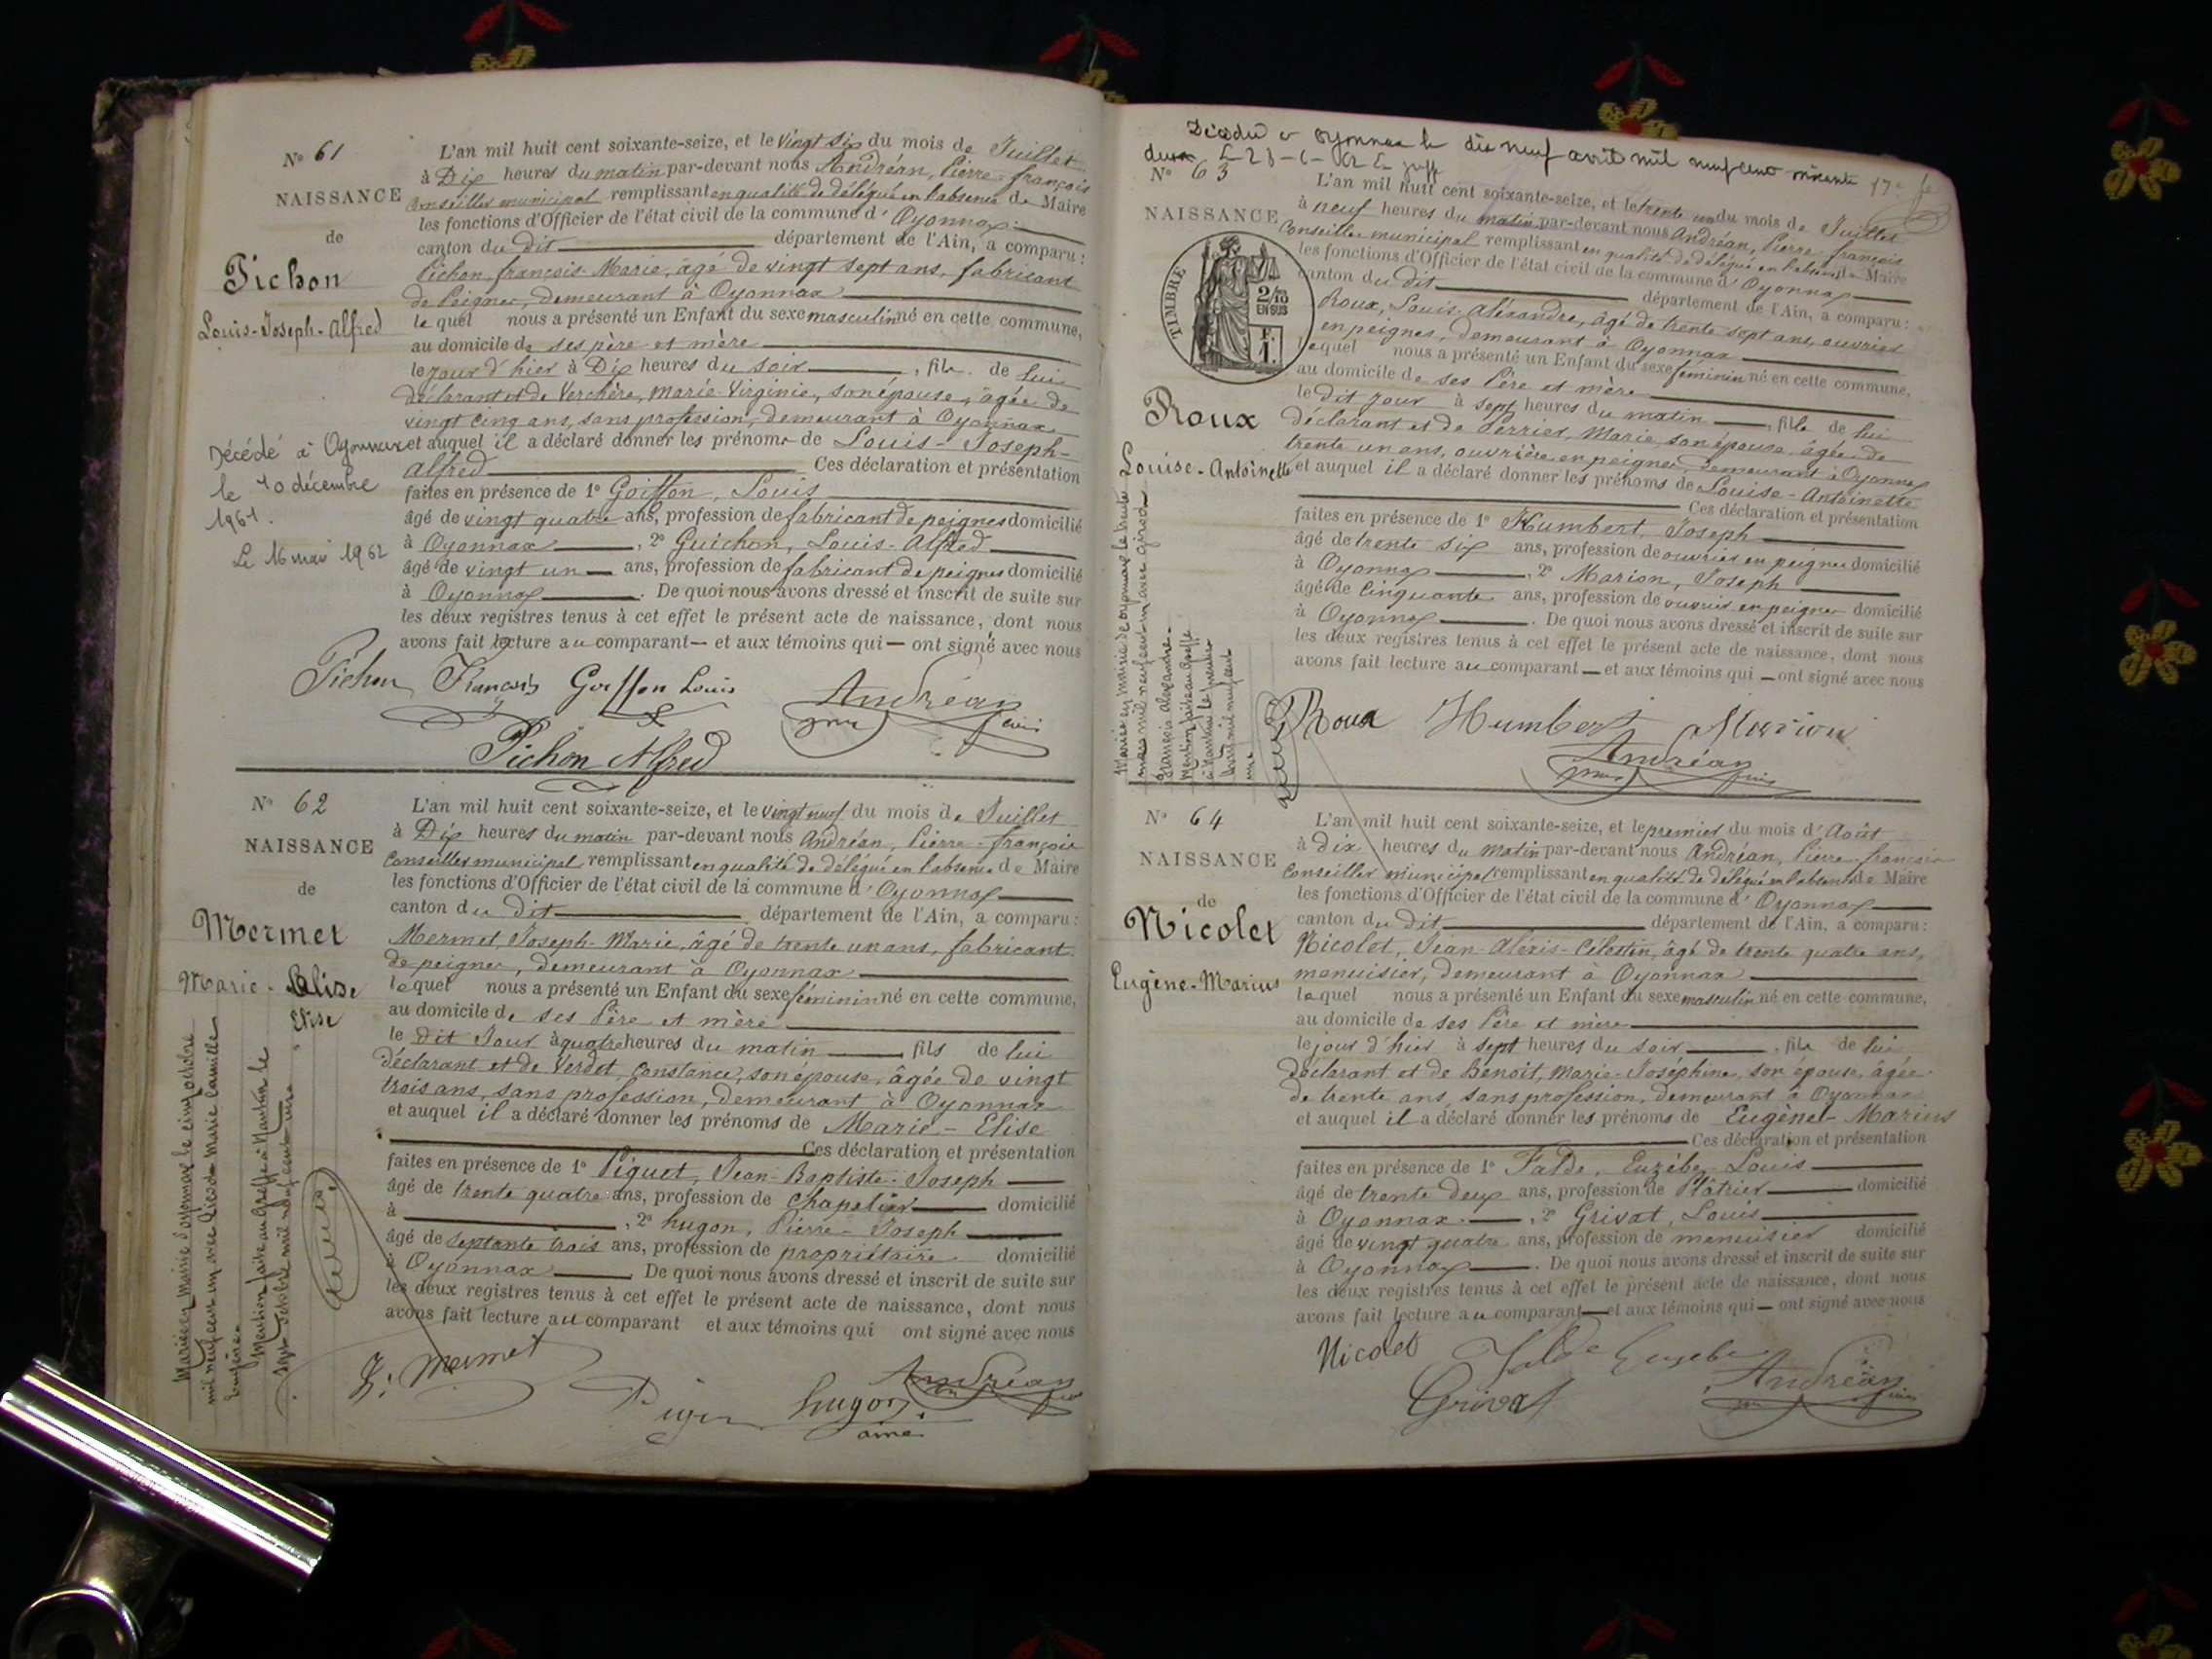 N° 61
NAISSANCE
de
Pichon
Louis-Joseph-Alfred
Décédé à Oyonnax
le 10 décembre
1961.
Le 16 mai 1962
L'an mil huit cent soixante-seize, et le vingt six du mois de Juillet
à Dix heures du matin par-devant nous Andréan, Pierre-françois
Conseiller municipal remplissant en qualité de délégué en l'absence de Maire
les fonctions d'Officier de l'état civil de la commune d'Oyonnax
canton du dit département de l'Ain, a comparu :
Pichon, françois-Marie, âgé de vingt sept ans, fabricant
de Peignes, demeurant à Oyonnax
lequel nous a présenté un Enfant du sexe masculin né en cette commune,
au domicile de ses père et mère
le jour d'hier à Dix heures du soir, fils de lui
déclarant et de Verchère, Marie-Virginie, son épouse, âgée de
vingt cinq ans, sans profession, demeurant à Oyonnax
et auquel il a déclaré donner les prénoms de Louis-Joseph-
Alfred Ces déclaration et présentation
faites en présence de 1° Goiffon, Louis
âgé de vingt quatre ans, profession de fabricant de peignes domicilié
à Oyonnax, 2° Guichon, Louis-Alfred
âgé de vingt un ans, profession de fabricant de peignes domicilié
à Oyonnax. De quoi nous avons dressé et inscrit de suite sur
les deux registres tenus à cet effet le présent acte de naissance, dont nous
avons fait lecture au comparant et aux témoins qui ont signé avec nous
Pichon François Goiffon Louis Andréan
Pichon Alfred
N° 62
NAISSANCE
de
Mermet
Marie-Elise
Elise
Mariée en mairie d'oyonnax le cinq octobre
mil neuf cent un avec Marie Camille
Eugène.
Mention faite au Greffe à Nantua le
sept octobre mil neuf cent un
L'an mil huit cent soixante-seize, et le vingt neuf du mois de Juillet
à Dix heures du matin par-devant nous Andréan, Pierre-françois
Conseiller municipal remplissant en qualité de délégué en l'absence de Maire
les fonctions d'Officier de l'état civil de la commune d'Oyonnax
canton du dit département de l'Ain, a comparu :
Mermet, Joseph-Marie, âgé de trente un ans, fabricant
de peignes, demeurant à Oyonnax
lequel nous a présenté un Enfant du sexe féminin né en cette commune,
au domicile de ses Père et mère
le dit Jour à quatre heures du matin, fils de lui
déclarant et de Verdet, Constance, son épouse, âgée de vingt
trois ans, sans profession, demeurant à Oyonnax
et auquel il a déclaré donner les prénoms de Marie-Elise
Ces déclaration et présentation
faites en présence de 1° Piguet, Jean-Baptiste-Joseph
âgé de trente quatre ans, profession de Chapelier domicilié
à, 2° hugon, Pierre-Joseph
âgé de septante trois ans, profession de propriétaire domicilié
à Oyonnax De quoi nous avons dressé et inscrit de suite sur
les deux registres tenus à cet effet le présent acte de naissance, dont nous
avons fait lecture au comparant et aux témoins qui ont signé avec nous
J. Mermet hugon Andréan
ainé
Décédée à Oyonnax le dix neuf avril mil neuf cent soixante
17e
N° 63
NAISSANCE
TIMBRE
2/10
EN SUS
F.
1.
Roux
Louise-Antoinette
Mariée en mairie d'oyonnax le trente
mars mil neuf cent un avec girod
François Alexandre.
L'an mil huit cent soixante-seize, et le trente un du mois de Juillet
à neuf heures du matin par-devant nous Andréan, Pierre-françois
Conseiller municipal remplissant en qualité de délégué en l'absence de Maire
les fonctions d'Officier de l'état civil de la commune d'Oyonnax
canton du dit département de l'Ain, a comparu :
Roux, Louis-Aléxandre, âgé de trente sept ans, ouvrier
en peignes, demeurant à Oyonnax
lequel nous a présenté un Enfant du sexe féminin né en cette commune,
au domicile de ses Père et mère
le dit jour à sept heures du matin, fille de lui
déclarant et de Perrier, Marie, son épouse, âgée de
trente un ans, ouvrière en peignes, demeurant à Oyonnax
et auquel il a déclaré donner les prénoms de Louise-Antoinette
Ces déclaration et présentation
faites en présence de 1° Humbert, Joseph
âgé de trente six ans, profession de ouvrier en peignes domicilié
à Oyonnax, 2° Marion, Joseph
âgé de Cinquante ans, profession de ouvrier en peignes domicilié
à Oyonnax. De quoi nous avons dressé et inscrit de suite sur
les deux registres tenus à cet effet le présent acte de naissance, dont nous
avons fait lecture au comparant et aux témoins qui ont signé avec nous
Roux Humbert Marion
Andréan
N° 64
NAISSANCE
de
Nicolet
Eugène-Marius
L'an mil huit cent soixante-seize, et le premier du mois d'Août
à dix heures du matin par-devant nous Andréan, Pierre-françois
Conseiller municipal remplissant en qualité de délégué en l'absence de Maire
les fonctions d'Officier de l'état civil de la commune d'Oyonnax
canton du dit département de l'Ain, a comparu :
Nicolet, Jean-Aléxis-Célestin, âgé de trente quatre ans,
menuisier, demeurant à Oyonnax
lequel nous a présenté un Enfant du sexe masculin né en cette commune,
au domicile de ses Père et mère
le jour d'hier à sept heures du soir, fils de lui
déclarant et de Benoit, Marie-Joséphine, son épouse, âgée
de trente ans, sans profession, demeurant à Oyonnax
et auquel il a déclaré donner les prénoms de Eugène-Marius
Ces déclaration et présentation
faites en présence de 1° Falde, Euzébe-Louis
âgé de trente deux ans, profession de Plâtrier domicilié
à Oyonnax, 2° Grivat, Louis
âgé de vingt quatre ans, profession de menuisier domicilié
à Oyonnax. De quoi nous avons dressé et inscrit de suite sur
les deux registres tenus à cet effet le présent acte de naissance, dont nous
avons fait lecture au comparant et aux témoins qui ont signé avec nous
Nicolet Falde Euzebe
Grivat Andréan